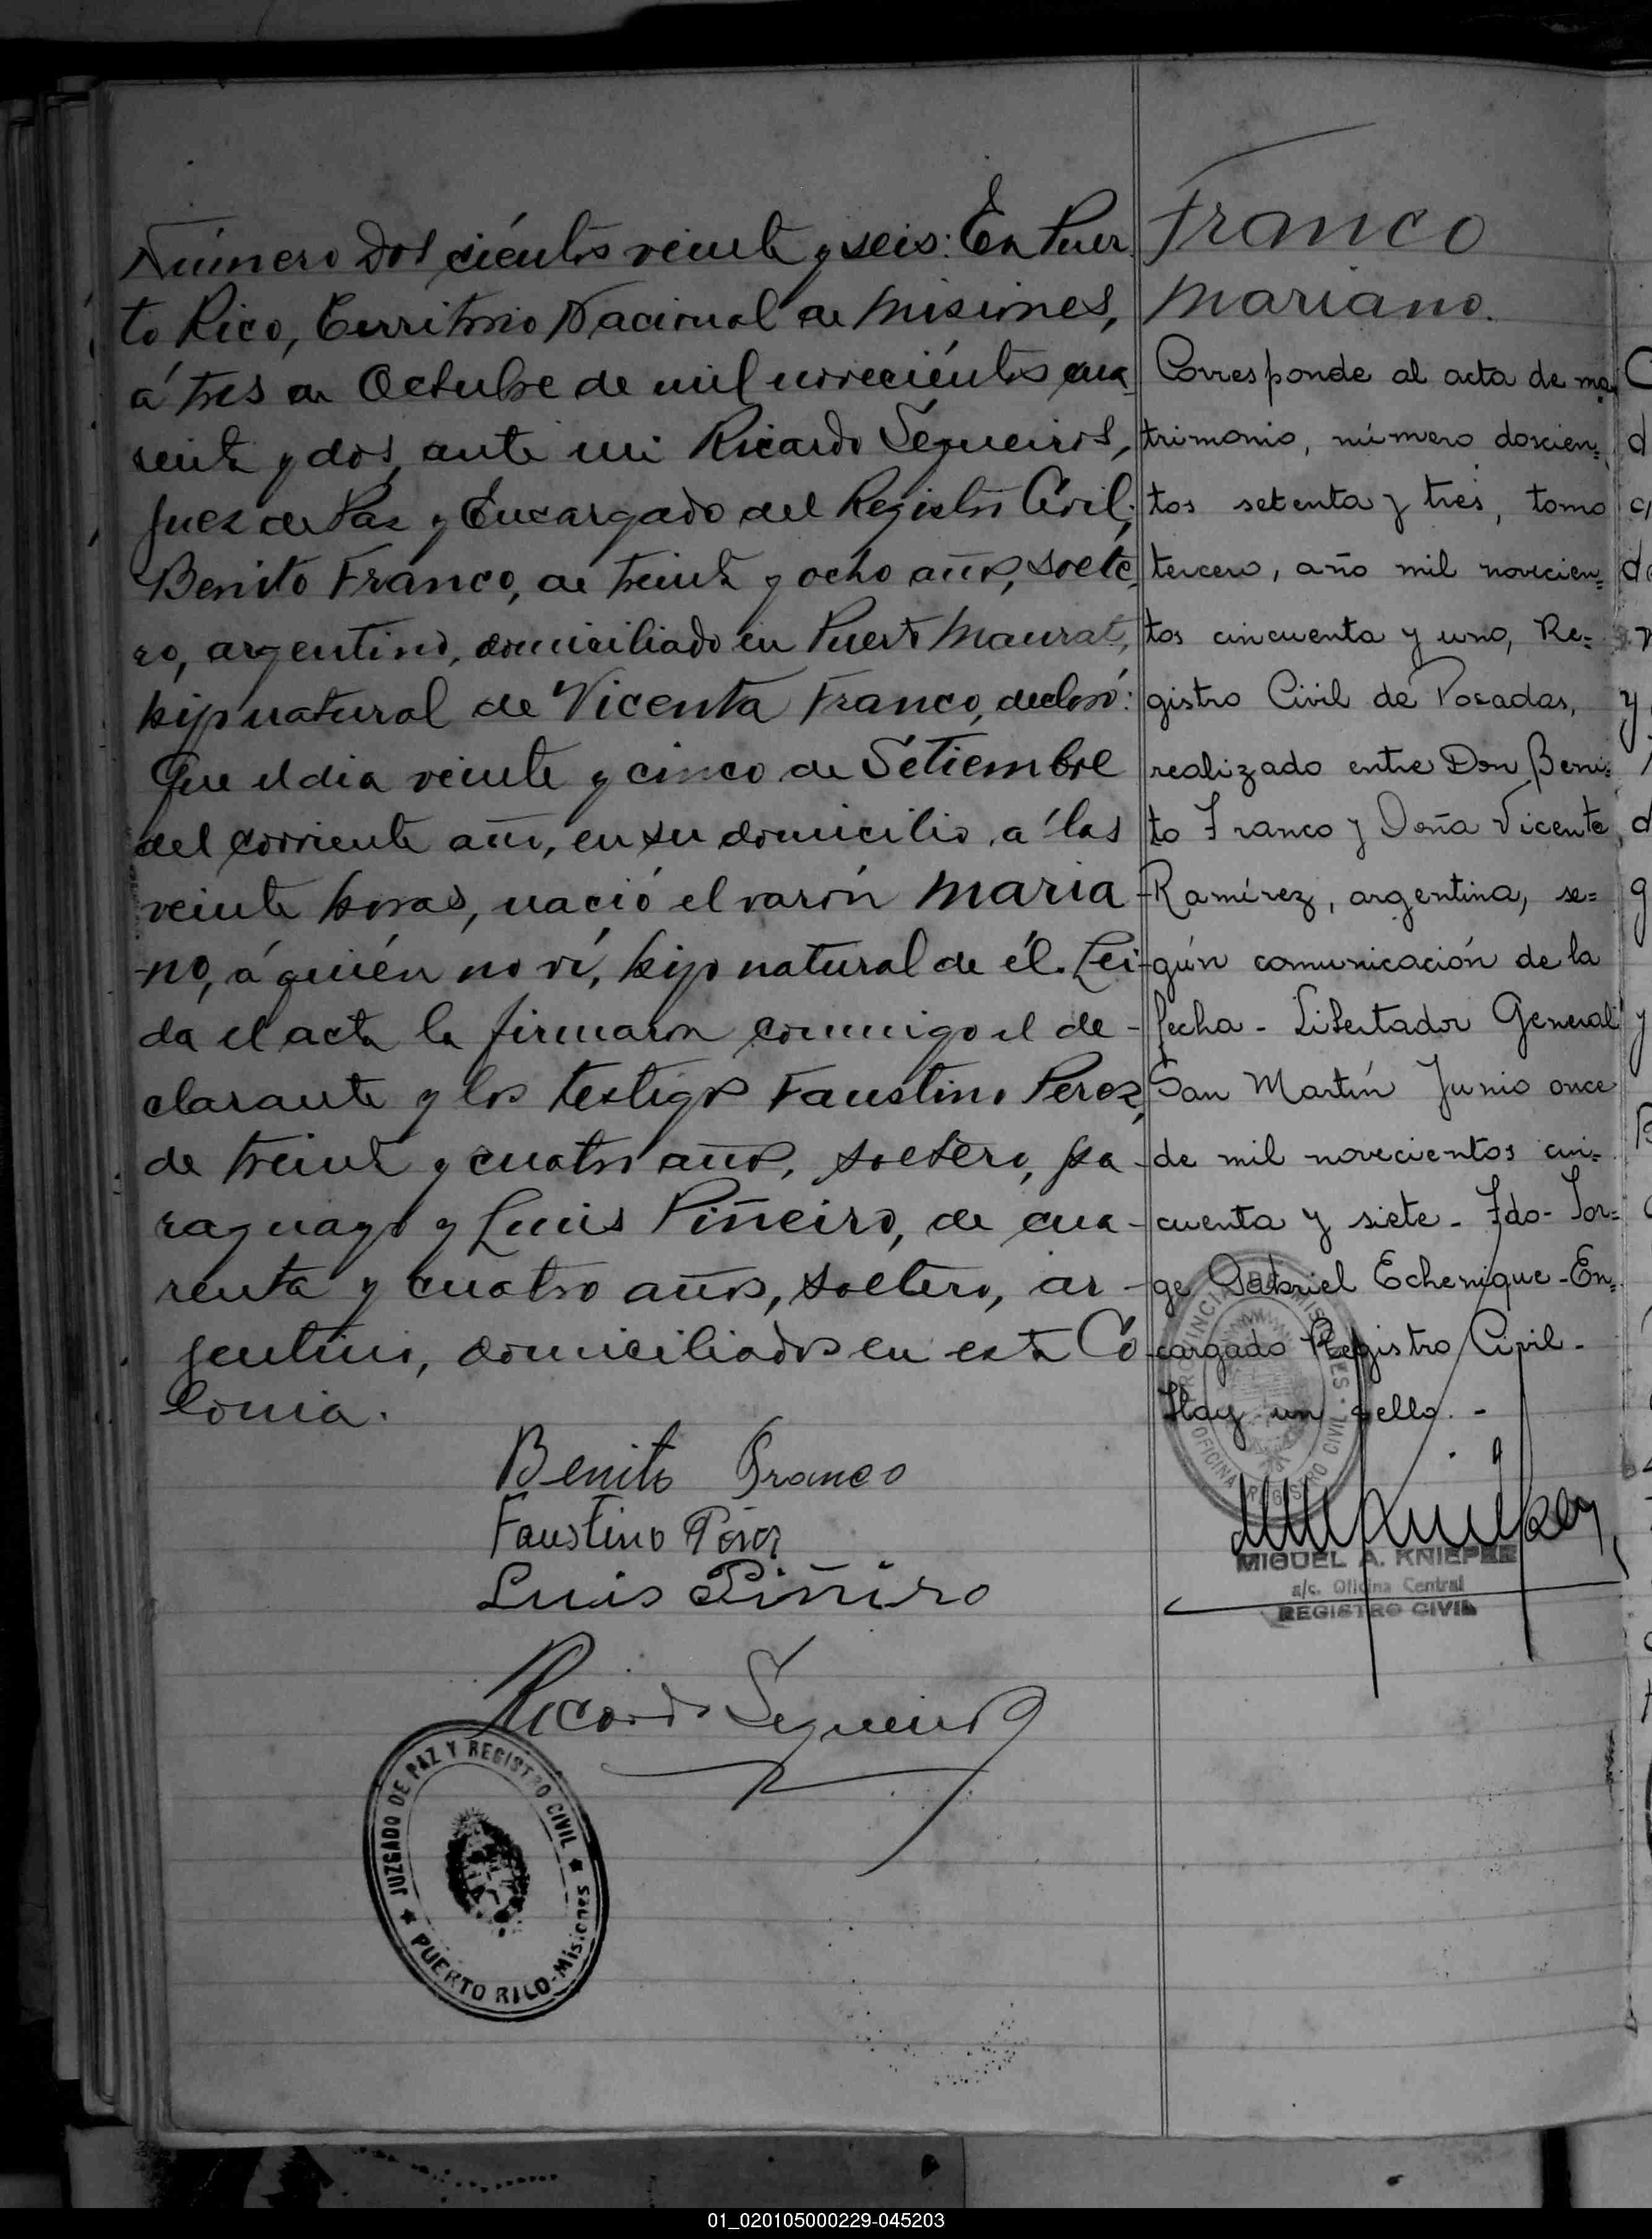 Número Dos cientos veinte y seis: En Puer
to Rico, Territorio Nacional de Misiones,
á tres de Octubre de mil novecientos cua
renta y dos, ante mi Ricardo Segueiros,
Juez de Paz y Encargado del Registro Civil;
Benito Franco, de treinta y ocho años, solte
ro, argentino, domiciliado en Puerto
hijo natural de Vicenta Franco, declaró:
Que el dia veinte y cinco de Setiembre
del corriente año, en su domicilio, a las
veinte horas, nació el varón Maria
-no, á quién no ví, hijo natural de él. Lei
da el acta la firmaron conmigo el de-
clarante y los testigos Faustino Perez,
de treinta y cuatro años, soltero, pa-
raguayo y Luis Piñeiro, de cua-
renta y cuatro años, soltero, ar-
gentino, domiciliados en esta Co
lonia.
Benito Franco
Faustino Pérez
Luis Piñiro
Ricardo Segueiros
JUZGADO DE PAZ Y REGISTRO CIVIL
PUERTO RICO-Misiones
Franco
Mariano.
Corresponde al acta de ma
trimonio, número doscien=
tos setenta y tres, tomo
tercero, año mil novecien=
tos cincuenta y uno, Re=
gistro Civil de Posadas,
realizado entre Don Beni=
to Franco y Doña Vicenta
Ramírez, argentina, se=
gún comunicación de la
fecha - Libertador General
San Martín Junio once
de mil novecientos cin=
cuenta y siete - Fdo- Jor=
ge Gabriel Echenique - En=
cargado Registro Civil -
Hay un sello. -
PROVINCIA DE MISIONES - OFICINA REGISTRO CIVIL
MIGUEL A. KNIEPER
a/c. Oficina Central
REGISTRO CIVIL
01_020105000229-045203